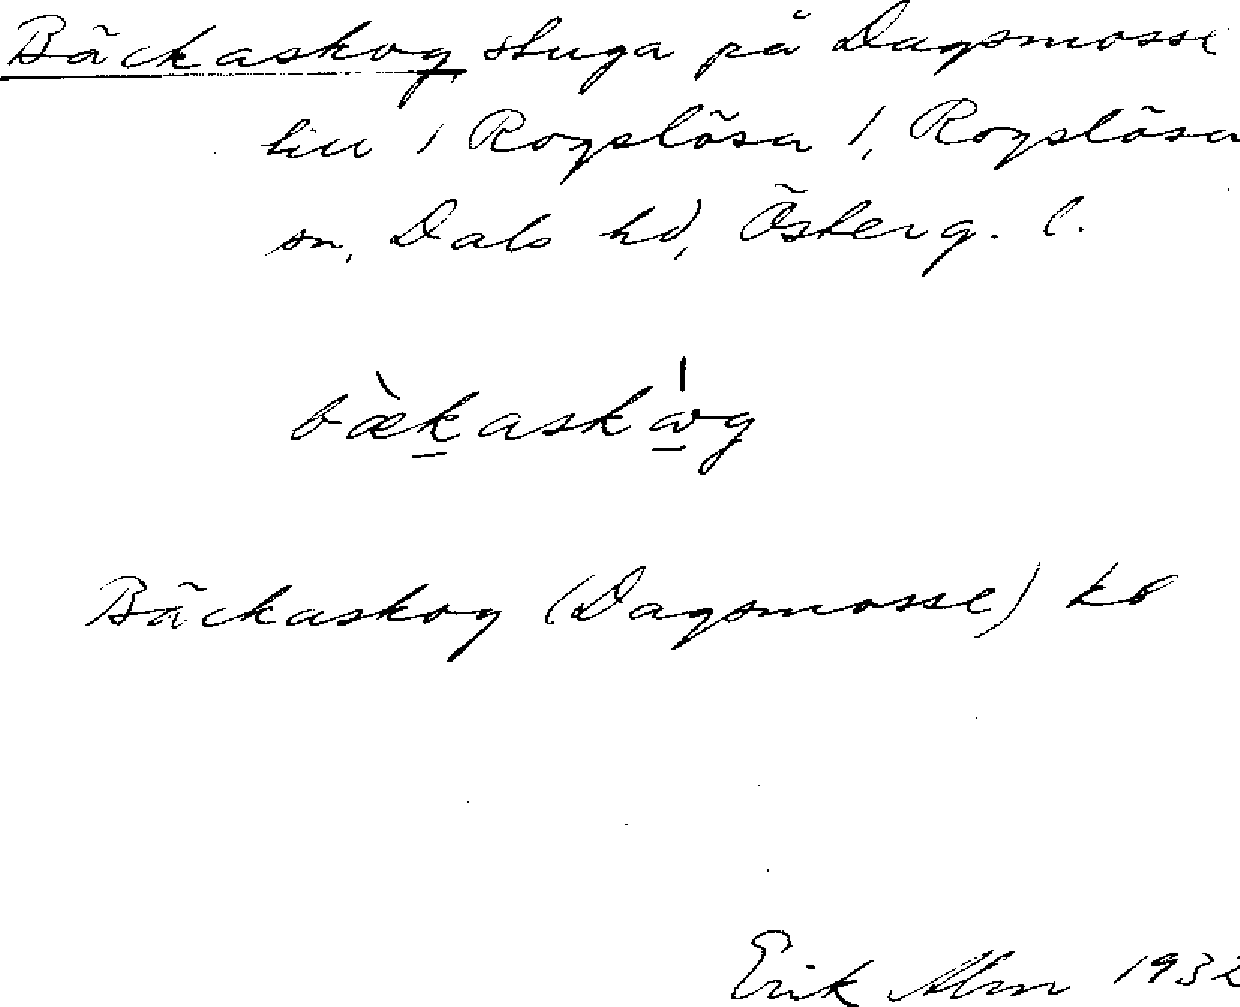 Bäckaskog stuga på Dagsmosse
till 1 Rogslösa 1, Rogslösa
sn, Dals hd, Österg. l.
bæ̀kaskɷ́g
Bäckaskog (Dagsmosse) kb
Erik Alm 1932